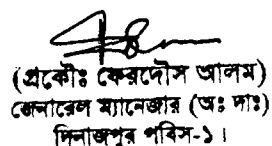 (প্রকৌঃ ফেরদৌস আলম)
জেনারেল ম্যানেজার (অঃ দাঃ)
দিনাজপুর পবিস-১।